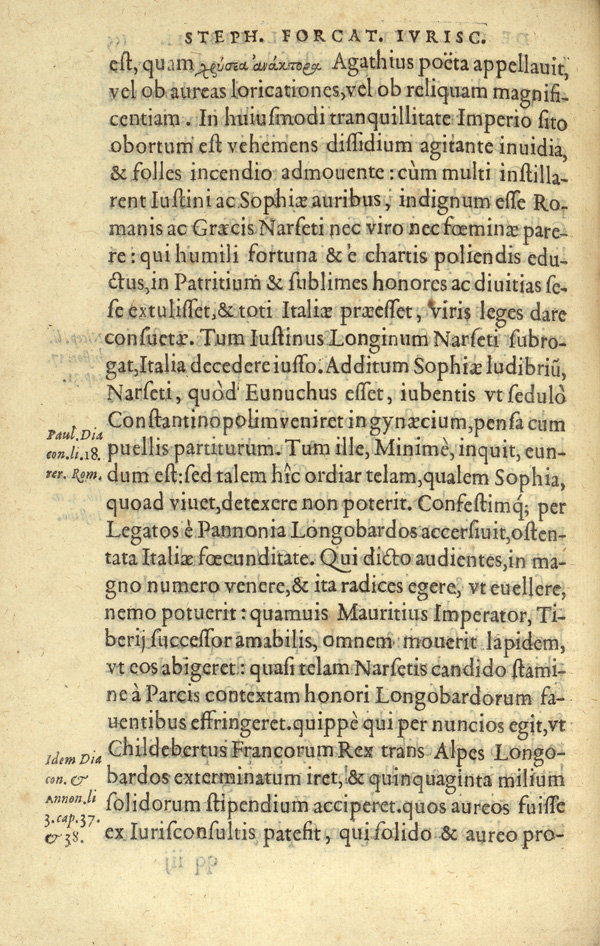 STEPH. FORCAT. IVRISC.
est, quam χρύσεα ἀνάκτορα Agathius poëta appellauit,
vel ob aureas loricationes,vel ob reliquam magnifi-
centiam. In huiusmodi tranquillitate Imperio sito
obortum est vehemens dissidium agitante inuidia,
& folles incendio admouente : cùm multi instilla-
rent Iustini ac Sophiæ auribus, indignum esse Ro-
manis ac Græcis Narseti nec viro nec fœminæ pare-
re : qui humili fortuna & è chartis poliendis edu-
ctus,in Patritium & sublimes honores ac diuitias se-
se extulisset,& toti Italiæ præesset, viris leges dare
consuetæ. Tum Iustinus Longinum Narseti subro-
gat,Italia decedere iusso. Additum Sophiæ ludibriũ,
Narseti, quòd Eunuchus esset, iubentis vt sedulò
Constantinopolim veniret in gynæcium,pensa cum
Paul. Dia
puellis partiturum. Tum ille, Minimè, inquit, eun-
con.li.18.
dum est:sed talem hîc ordiar telam,qualem Sophia,
rer. Rom.
quoad viuet,detexere non poterit. Confestimq́; per
Legatos è Pannonia Longobardos accersiuit,osten-
tata Italiæ fœcunditate. Qui dicto audientes,in ma-
gno numero venere,& ita radices egere, vt euellere,
nemo potuerit : quamuis Mauritius Imperator, Ti-
berij successor amabilis, omnem mouerit lapidem,
vt eos abigeret : quasi telam Narsetis candido stami-
ne à Parcis contextam honori Longobardorum fa-
uentibus effringeret.quippè qui per nuncios egit,vt
Childebertus Francorum Rex trans Alpes Longo-
Idem Dia
bardos exterminatum iret, & quinquaginta milium
con. &
solidorum stipendium acciperet.quos aureos fuisse
Annon.li
3.cap.37.
ex Iurisconsultis patesit, qui solido & aureo pro-
& 38.